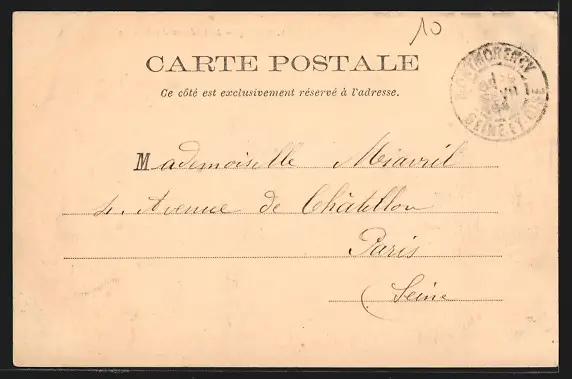 10
CARTE POSTALE
Ce côté est exclusivement réservé à l'adresse.
MONTMORENCY
SEINE ET OISE
Mademoiselle Miavril
4. Avenue de Châtillon
Paris
Seine